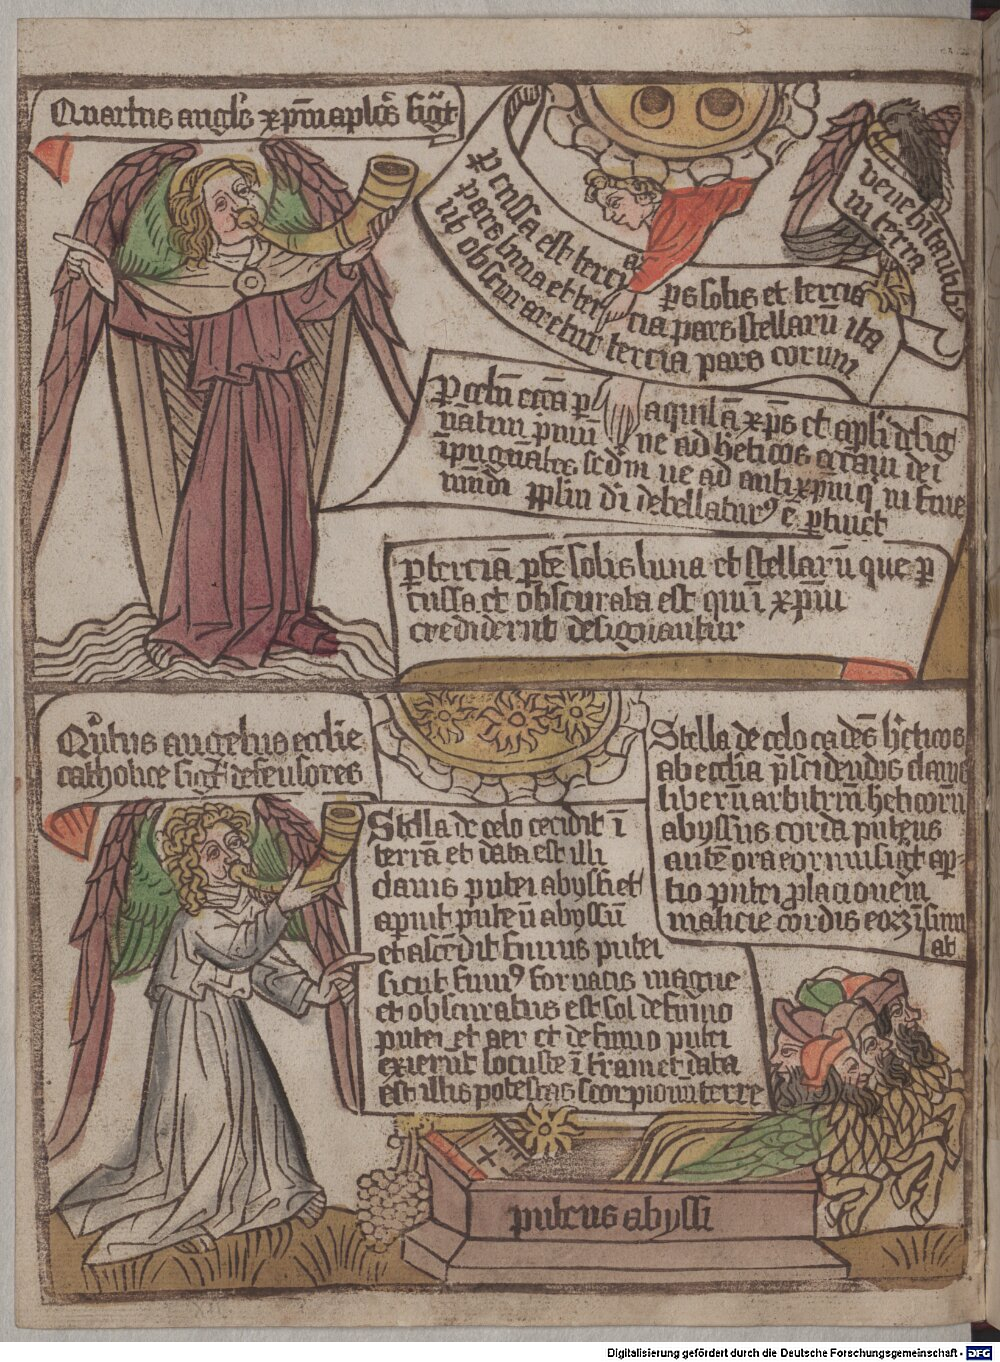 Quartus angl's xpm aplos sigt
Percussa est tercia
pars luna et ter
ut obscuraretur
ps solis et tercia
cia pars stellarū ita
tercia pars eorum
ve ve habitantibus
in terra
P celū ecciā p
aquilā xps et apli desig
natur primū
ne ad heticos ecciam dei
ipugnātes scdm ve ad antixpm q in fine
mūdi pplm di debellaturꝰ ē ptinet
P terciā ptē solis luna et stellarū que p
cussa et obscurata est qui ī xpm
crediderūt designantur
Quītus angelus ecclie
catholice sigt defensores
Stella de celo cecidit ī
terrā et data est illi
clavis putei abyssi et
apuit puteū abyssū
et ascēdit fumus putei
sicut fumꝰ fornacis magne
et obscuratus est sol de fumo
putei et aer et de fumo putei
exierūt locuste ī terram et data
est illis potestas scorpionū terre
Stella de celo cadēs hēticos
ab ecclia pscidendos clavis
liberū arbitriū heticorū
abyssus corda puteus
autē ora eorum sigt ap
tio putei placionem
malicie cordis eoꝝ īsinu
at
puteus abyssi
Digitalisierung gefördert durch die Deutsche Forschungsgemeinschaft - DFG